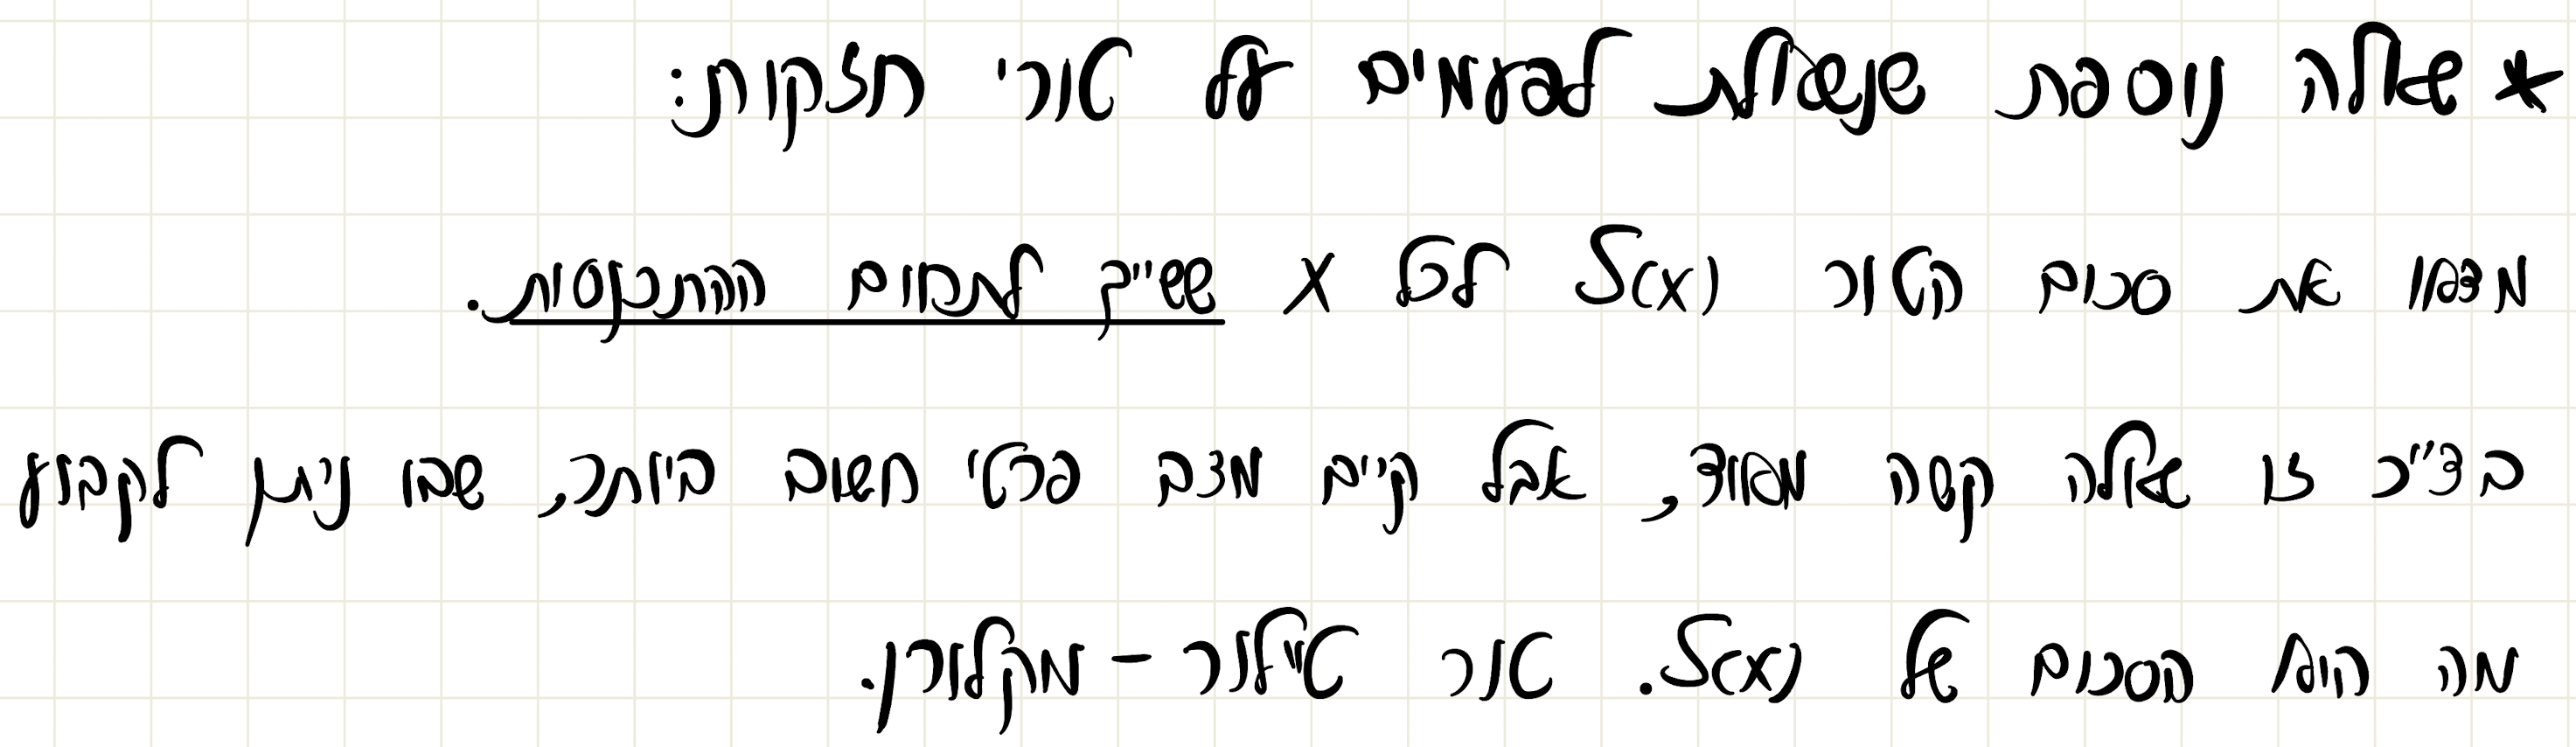 * שאלה נוספת שנשאלת לפעמים על טורי חזקות:
מצאו את סכום הטור S(x) לכל x ששייך לתחום ההתכנסות.
בד"כ זו שאלה קשה מאוד, אבל קיים מצב פרטי חשוב ביותר, שבו ניתן לקבוע
מה הוא הסכום של S(x). טור טיילור - מקלורן.